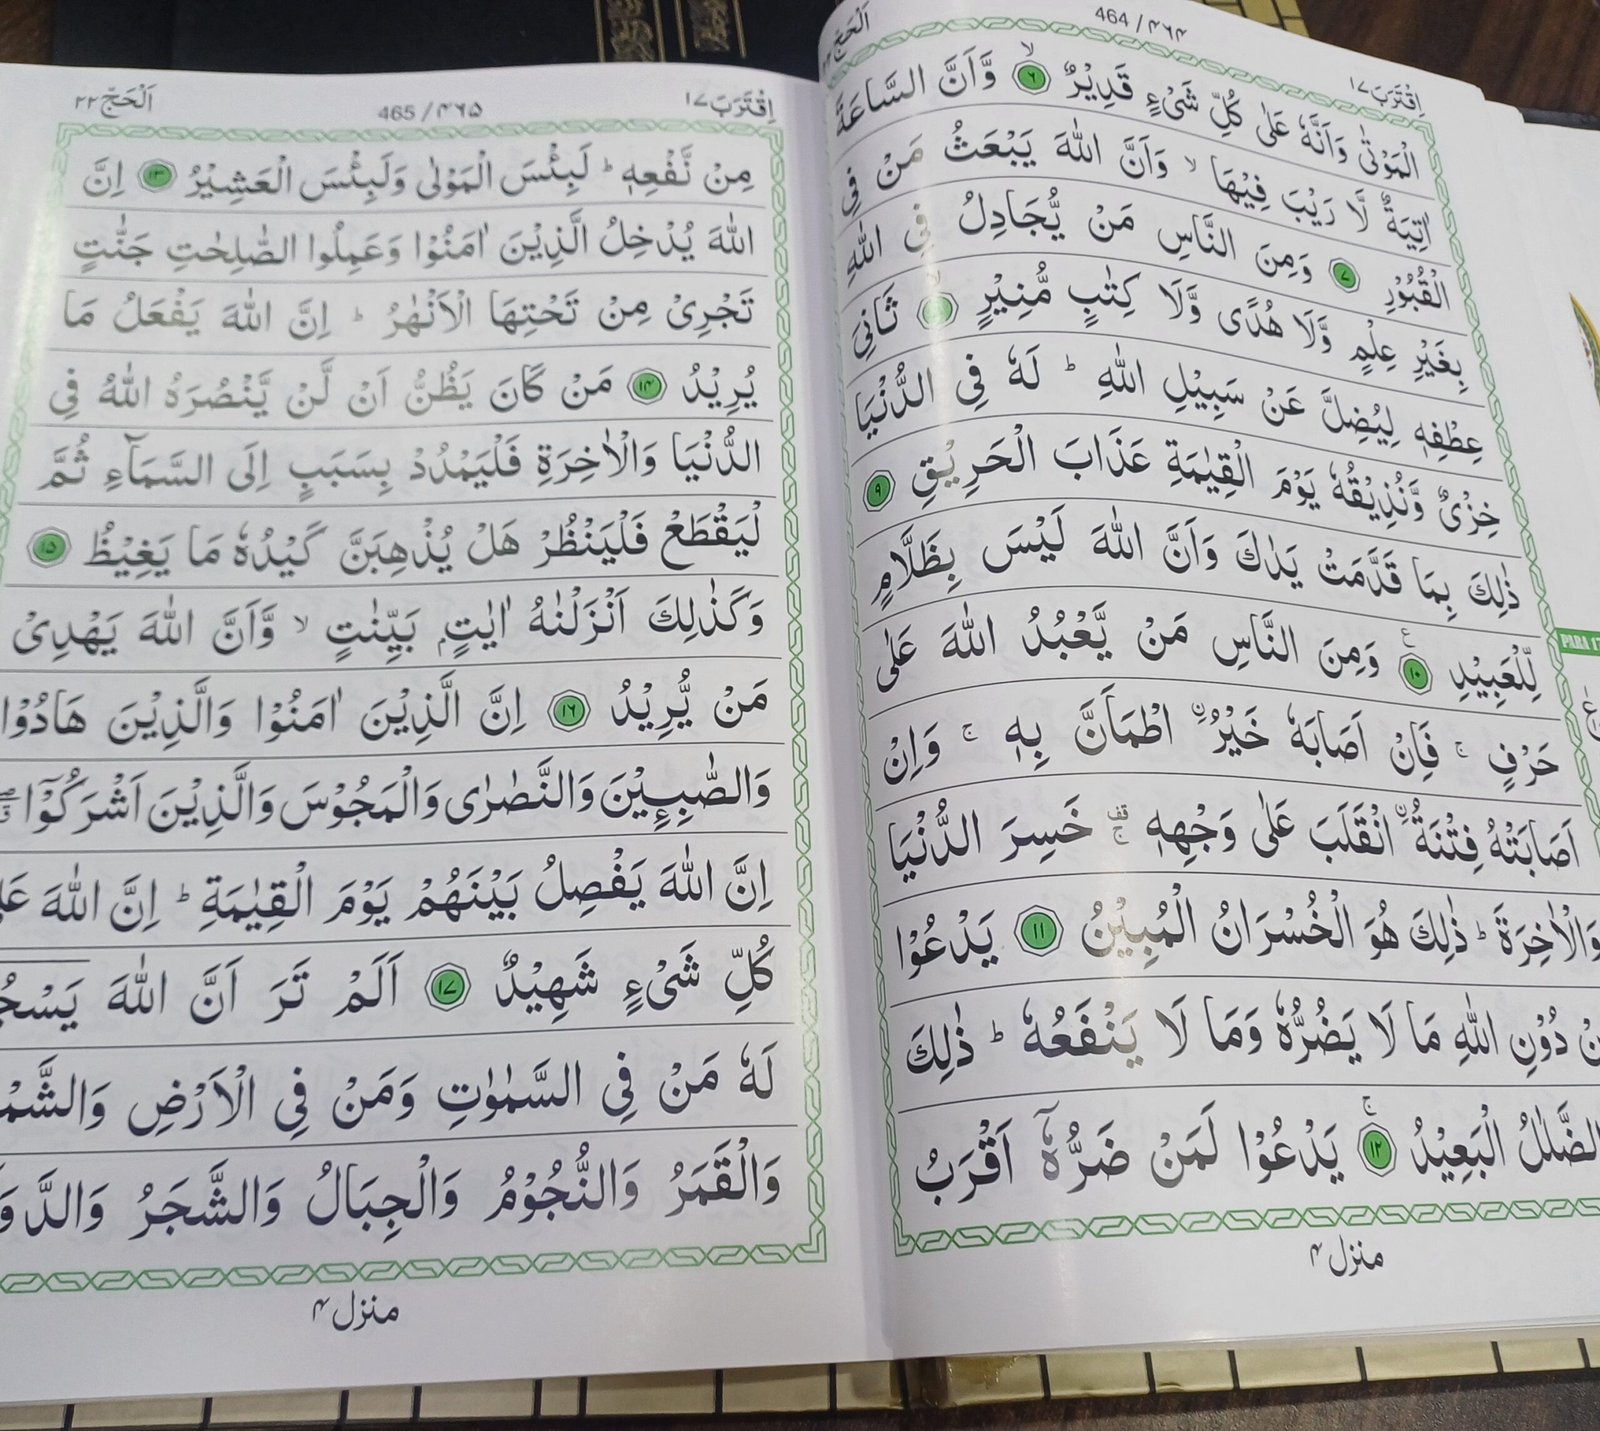 اَلْحَجّ
464 / ۴۶۴
اِقْتَرَبَ ١٧
الْمَوْتٰى وَاَنَّهٗ عَلٰى كُلِّ شَىْءٍ قَدِيْرٌ ۙ ٦ وَّاَنَّ السَّاعَةَ
اٰتِيَةٌ لَّا رَيْبَ فِيْهَا ۙ وَاَنَّ اللّٰهَ يَبْعَثُ مَنْ فِى
الْقُبُوْرِ ٧ وَمِنَ النَّاسِ مَنْ يُّجَادِلُ فِى اللّٰهِ
بِغَيْرِ عِلْمٍ وَّلَا هُدًى وَّلَا كِتٰبٍ مُّنِيْرٍ ۙ ثَانِىَ
عِطْفِهٖ لِيُضِلَّ عَنْ سَبِيْلِ اللّٰهِ ؕ لَهٗ فِى الدُّنْيَا
خِزْىٌ وَّنُذِيْقُهٗ يَوْمَ الْقِيٰمَةِ عَذَابَ الْحَرِيْقِ ٩
ذٰلِكَ بِمَا قَدَّمَتْ يَدٰكَ وَاَنَّ اللّٰهَ لَيْسَ بِظَلَّامٍ
لِّلْعَبِيْدِ ١٠ وَمِنَ النَّاسِ مَنْ يَّعْبُدُ اللّٰهَ عَلٰى
حَرْفٍ ۚ فَاِنْ اَصَابَهٗ خَيْرُ ۨ اطْمَاَنَّ بِهٖ ۚ وَاِنْ
اَصَابَتْهُ فِتْنَةُ ۨ انْقَلَبَ عَلٰى وَجْهِهٖ ۚ قف خَسِرَ الدُّنْيَا
وَالْاٰخِرَةَ ؕ ذٰلِكَ هُوَ الْخُسْرَانُ الْمُبِيْنُ ١١ يَدْعُوْا
دُوْنِ اللّٰهِ مَا لَا يَضُرُّهٗ وَمَا لَا يَنْفَعُهٗ ؕ ذٰلِكَ
الضَّلٰلُ الْبَعِيْدُ ۚ ١٢ يَدْعُوْا لَمَنْ ضَرُّهٗۤ اَقْرَبُ
منزل ۴
PARA 17
اَلْحَجّ ٢٢
465 / ۴۶۵
اِقْتَرَبَ ١٧
مِنْ نَّفْعِهٖ ؕ لَبِئْسَ الْمَوْلٰى وَلَبِئْسَ الْعَشِيْرُ ١٣ اِنَّ
اللّٰهَ يُدْخِلُ الَّذِيْنَ اٰمَنُوْا وَعَمِلُوا الصّٰلِحٰتِ جَنّٰتٍ
تَجْرِىْ مِنْ تَحْتِهَا الْاَنْهٰرُ ؕ اِنَّ اللّٰهَ يَفْعَلُ مَا
يُرِيْدُ ١٤ مَنْ كَانَ يَظُنُّ اَنْ لَّنْ يَّنْصُرَهُ اللّٰهُ فِى
الدُّنْيَا وَالْاٰخِرَةِ فَلْيَمْدُدْ بِسَبَبٍ اِلَى السَّمَآءِ ثُمَّ
لْيَقْطَعْ فَلْيَنْظُرْ هَلْ يُذْهِبَنَّ كَيْدُهٗ مَا يَغِيْظُ ١٥
وَكَذٰلِكَ اَنْزَلْنٰهُ اٰيٰتٍۭ بَيِّنٰتٍ ۙ وَّاَنَّ اللّٰهَ يَهْدِىْ
مَنْ يُّرِيْدُ ١٦ اِنَّ الَّذِيْنَ اٰمَنُوْا وَالَّذِيْنَ هَادُوْا
وَالصّٰبِـِٕيْنَ وَالنَّصٰرٰى وَالْمَجُوْسَ وَالَّذِيْنَ اَشْرَكُوْۤا
اِنَّ اللّٰهَ يَفْصِلُ بَيْنَهُمْ يَوْمَ الْقِيٰمَةِ ؕ اِنَّ اللّٰهَ
كُلِّ شَىْءٍ شَهِيْدٌ ١٧ اَلَمْ تَرَ اَنَّ اللّٰهَ
لَهٗ مَنْ فِى السَّمٰوٰتِ وَمَنْ فِى الْاَرْضِ
وَالْقَمَرُ وَالنُّجُوْمُ وَالْجِبَالُ وَالشَّجَرُ
منزل ۴